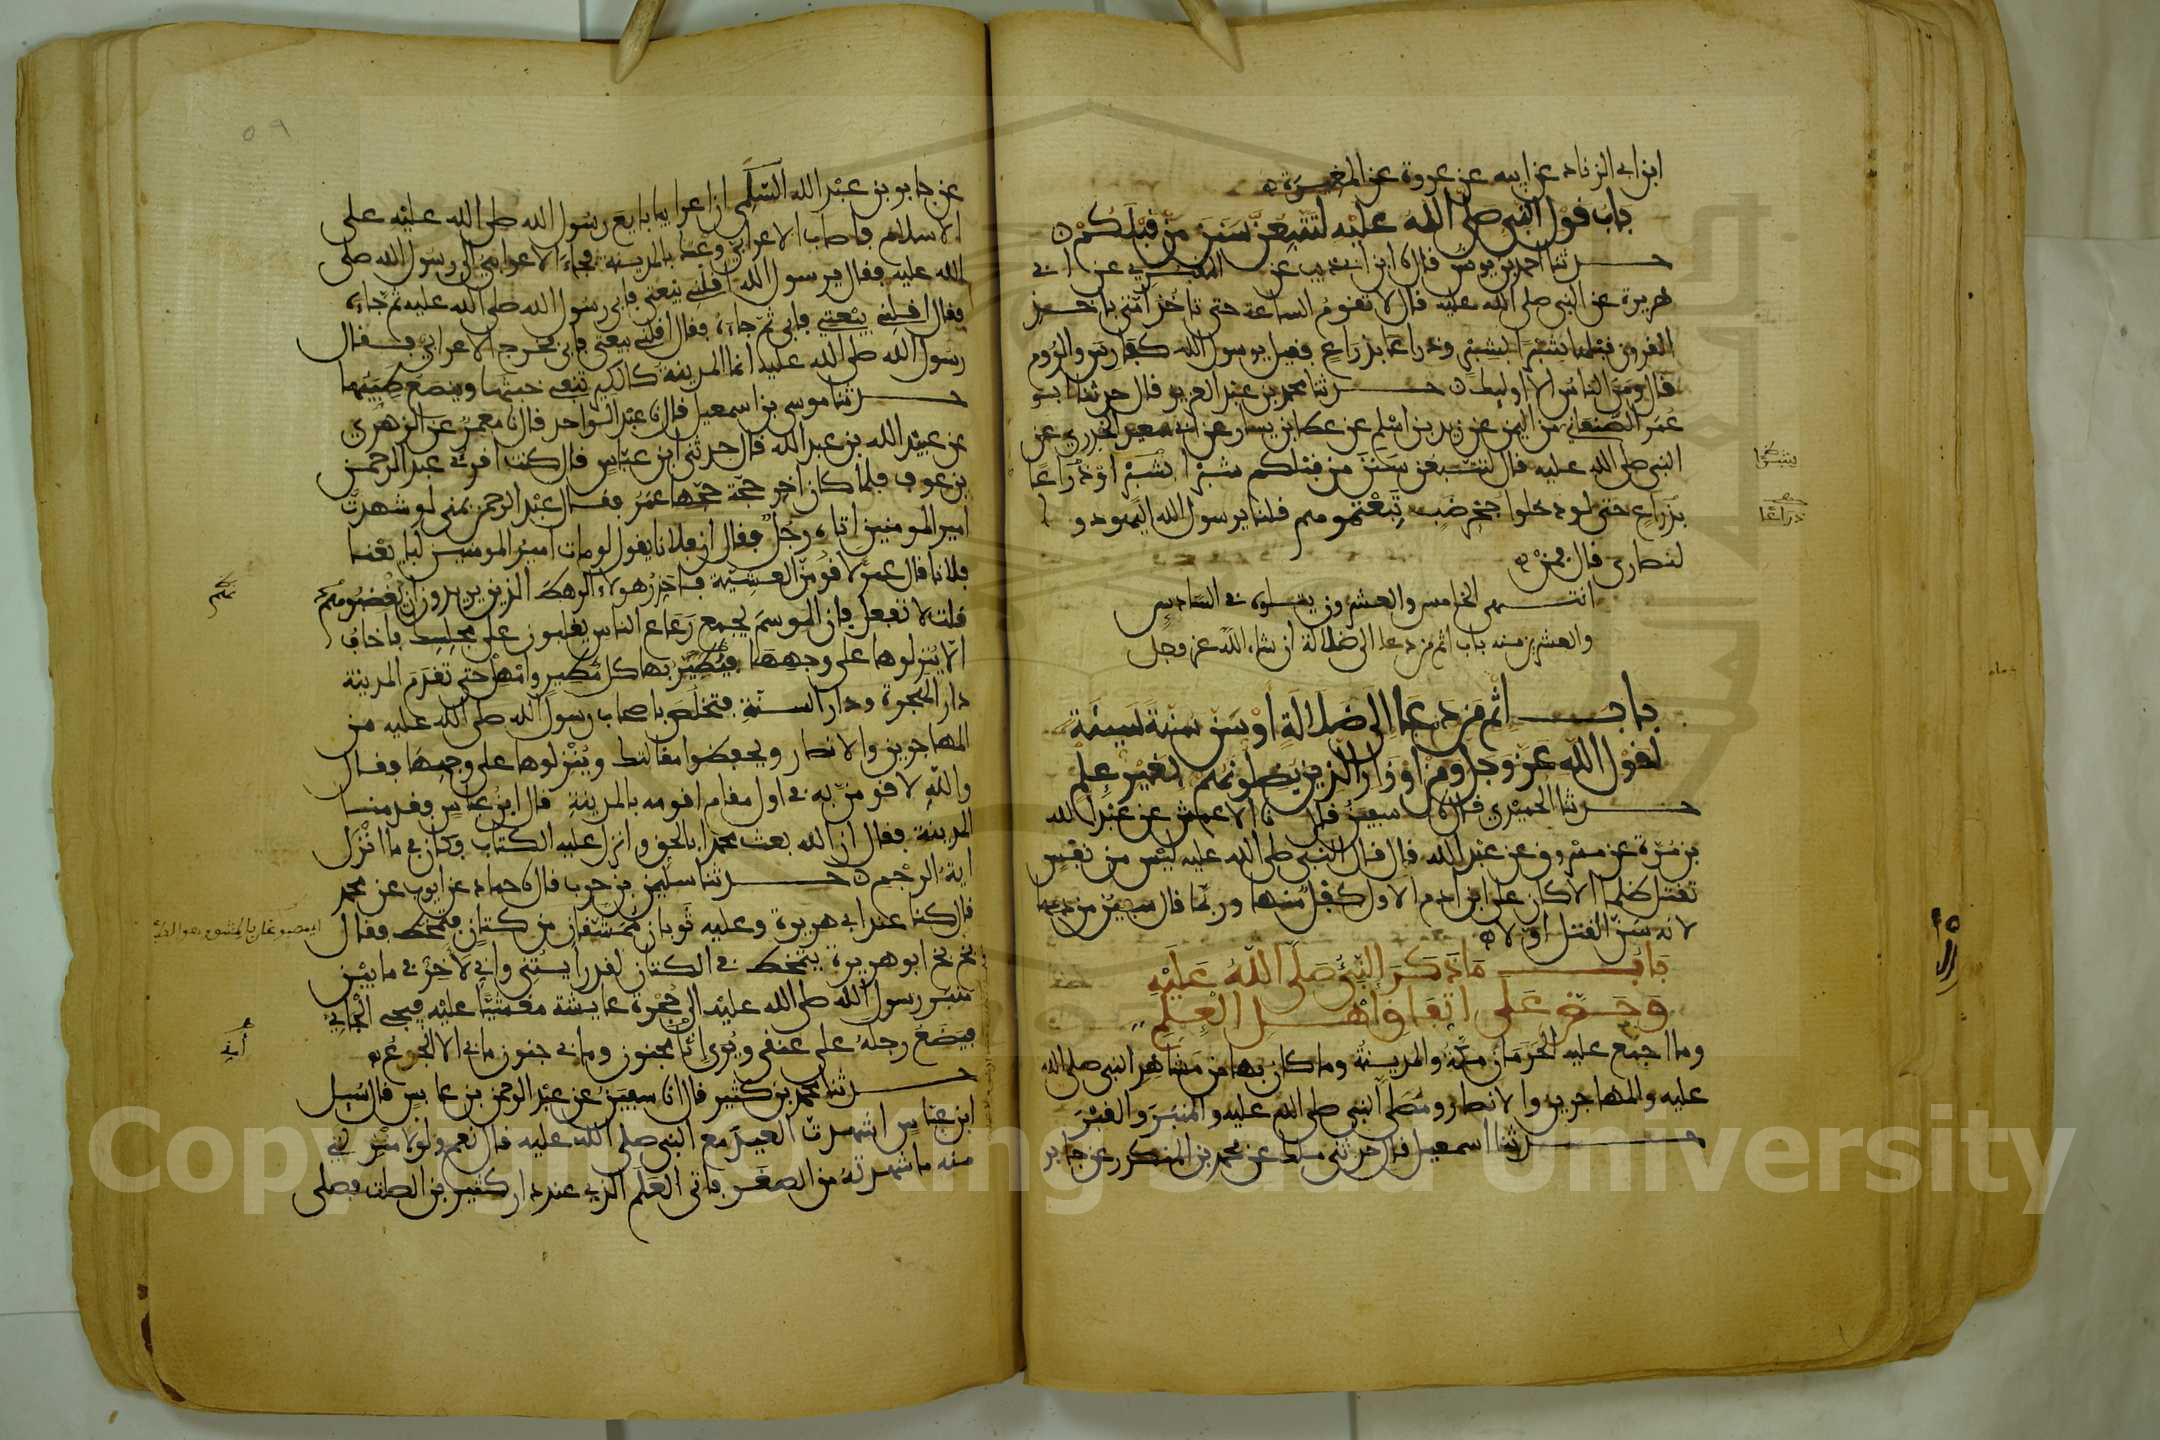 ابن ابي الزناد عن ابيه عن عروة عن المغيرة
باب قول النبي صلى الله عليه لتتبعن سنن من قبلكم
حدثنا احمد بن يونس قال نا ابن ابي ذيب عن المقبري عن ابي
هريرة عن النبي صلى الله عليه قال لا تقوم الساعة حتى تاخذ امتي باخذ
القرون قبلها شبرا بشبر وذراعا بذراع فقيل يرسول الله كفارس والروم
قال ومن الناس الا اوليك حدثنا محمد بن عبد العزيز قال حدثنا ابو
عمر الصنعاني من اليمن عن زيد بن اسلم عن عطا بن يسار عن ابي سعيد الخدري عن
النبي صلى الله عليه قال لتتبعن سنن من قبلكم شبرا بشبر او ذراعا
بذراع حتى لو دخلوا جحر ضب تبعتموهم قلنا يرسول الله اليهود و
لنصارى قال فمن
انتهى الخامس والعشرون يتلوه في السادس
والعشرين منه باب اثم من دعا الى ضلالة ان شاء الله عز وجل
باب اثم من دعا الى ضلالة او سن سنة سيئة
لقول الله عز وجل ومن اوزار الذين يضلونهم بغير علم
حدثنا الحميدي قال نا سفين قال نا الاعمش عن عبد الله
بن مرة عن مسروق عن عبد الله قال قال النبي صلى الله عليه ليس من نفس
تقتل ظلما الا كان على ابن ادم الاول كفل منها وربما قال سفين من دمها
لانه سن القتل اولا
باب ما ذكر النبي صلى الله عليه
وحض على اتفاق اهل العلم
وما اجمع عليه الحرمان مكة والمدينة وما كان بها من مشاهد النبي صلى الله
عليه والمهاجرين والانصار ومصلى النبي صلى الله عليه والمنبر والقبر
حدثنا اسمعيل قال حدثني ملك عن محمد بن المنكدر عن جابر
شبرا
ذراعا
٢٥
٥٩
عن جابر بن عبد الله السلمي ان اعرابيا بايع رسول الله صلى الله عليه على
الاسلام فاصاب الاعرابي وعك بالمدينة فجاء الاعرابي الى رسول الله صلى
الله عليه فقال يرسول الله اقلني بيعتي فابى رسول الله صلى الله عليه ثم جاءه
فقال اقلني بيعتي فابى ثم جاءه فقال اقلني بيعتي فابى فخرج الاعرابي فقال
رسول الله صلى الله عليه انما المدينة كالكير تنفي خبثها وينصع طيبها
حدثنا موسى بن اسمعيل قال نا عبد الواحد قال نا معمر عن الزهري
عن عبيد الله بن عبد الله قال حدثني ابن عباس قال كنت اقرئ عبد الرحمن
بن عوف فلما كان اخر حجة حجها عمر فقال عبد الرحمن بمنى لو شهدت
امير المومنين اتاه رجل فقال ان فلانا يقول لو مات امير المومنين لبايعنا
فلانا قال عمر لاقومن العشية فاحذر هولاء الرهط الذين يريدون ان يغصبوهم
قلت لا تفعل فان الموسم يجمع رعاع الناس يغلبون على مجلسك فاخاف
الا ينزلوها على وجهها فيطير بها كل مطير وامهل حتى تقدم المدينة
دار الهجرة ودار السنة فتخلص باصحاب رسول الله صلى الله عليه من
المهاجرين والانصار ويحفظوا مقالتك وينزلوها على وجهها فقال
والله لاقومن به في اول مقام اقومه بالمدينة قال ابن عباس فقدمنا
المدينة فقال ان الله بعث محمدا بالحق وانزل عليه الكتاب وكان في ما انزل
اية الرجم حدثنا سليمن بن حرب قال نا حماد عن ايوب عن محمد
قال كنا عند ابي هريرة وعليه ثوبان ممشقان من كتان فتمخط فقال
بخ بخ ابو هريرة يتمخط في الكتان لقد رايتني واني لاخر في ما بين
منبر رسول الله صلى الله عليه الى حجرة عايشة مغشيا عليه فيجي الجاني
فيضع رجله على عنقي ويرى انا مجنون وما بي جنون ما بي الا الجوع
حدثنا محمد بن كثير قال انا سفين عن عبد الرحمن بن عابس قال سيل
ابن عباس اشهدت العيد مع النبي صلى الله عليه قال نعم ولولا منزلتي
منه ما شهدته من الصغر فاتى العلم الذي عند دار كثير بن الصلت فصلى
Copyright © King Saud University